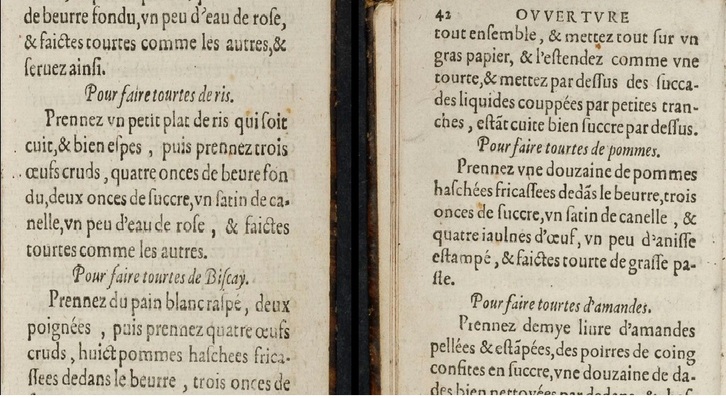 de beurre fondu,vn peu d'eau de rose,
& faictes tourtes comme les autres,&
seruez ainsi.
Pour faire tourtes de ris.
Prennez vn petit plat de ris qui soit
cuit,& bien espes , puis prennez trois
œufs cruds , quatre onces de beure fon
du,deux onces de succre,vn satin de ca-
nelle,vn peu d'eau de rose , & faictes
tourtes comme les autres.
Pour faire tourtes de Biscay.
Prennez du pain blanc raspé , deux
poignées , puis prennez quatre œufs
cruds , huict pommes haschees frica-
ssees dedans le beurre , trois onces de
42 OVVERTVRE
tout ensemble , & mettez tout sur vn
gras papier, & l'estendez comme vne
tourte,& mettez par dessus des succa-
des liquides couppées par petites tran-
ches , estãt cuite bien succre par dessus.
Pour faire tourtes de pommes.
Prennez vne douzaine de pommes
haschées fricassees dedãs le beurre,trois
onces de succre,vn satin de canelle , &
quatre iaulnes d'œuf, vn peu d'anisse
estampé , & faictes tourte de grasse pa-
ste.
Pour faire tourtes d'amandes.
Prennez demye liure d'amandes
pellées & estãpées,des poirres de coing
confites en succre,vne douzaine de da-
des bien nettoyées par dedans, &